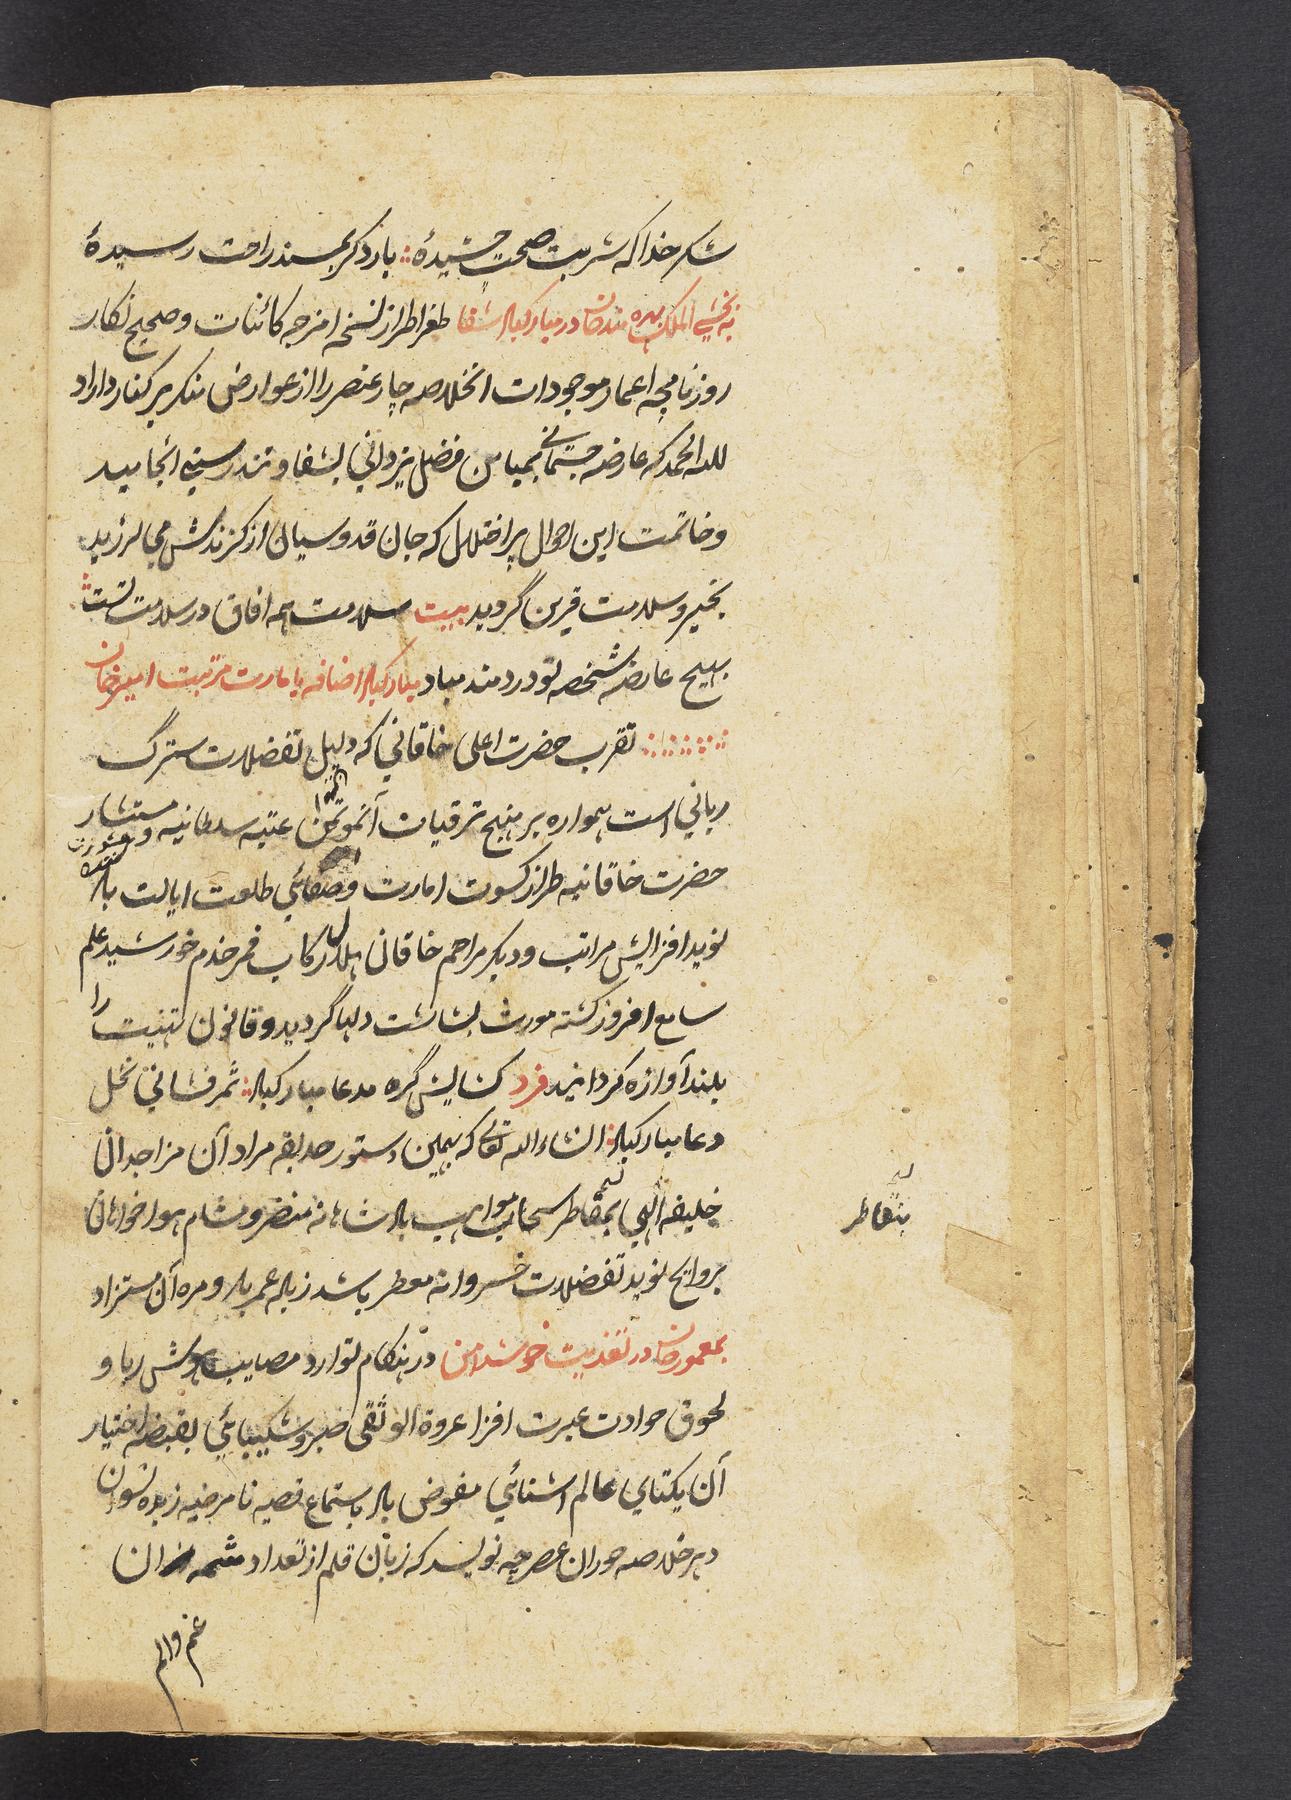 شکر خدا که شربت صحت چشیدهٔ باردگر بمسند راحت رسیدهٔ
به بخشی الملک بهره مند خان در مبارکباد شفا طغرا طراز نسخه امزجه کائنات و صحیح نگار
روزنامچه اعمار موجودات انخلاصه چار عنصر را از عوارض منکر بر کنار داراد
لله الحمد که عارضه جسمانی بمیامن فضل یزدانی بشفا و تندرستی انجامید
و خاتمت این احوال پر اختلال که جان قدوسیان از گزندش می لرزید
بخیر و سلامت قرین گردید بیت سلامت همه افاق در سلامت تست
بهیچ عارضه شخص تو دردمند مباد مبارکباد اضافه بامارت مرتبت امیر خان
تقرب حضرت اعلی خاقانی که دلیل تفضلات سترگ
ربانی است همواره بر منهج ترقیات آنموتمن عتبه سلطانیه و مستشار
حضرت خاقانیه طراز کسوت امارت و صفائی طلعت ایالت باد
نوید افزایش مراتب و دیگر مراحم خاقان هلال رکاب قمر خدم خورشید علم
سامع افروز گشته مورث بشاشت دلها گردید و قانون تهنیت را
بلند آوازه گردانید فرد کشایش گره مدعا مبارکباد ثمر فشانی نخل
دعا مبارکباد انشاء الله تعالی که بهمین دستور حدیقه مراد آن مزاجدان
خلیفه الهی بمقاطر سحاب مواهب بادشاهانه منضر و مشام هواخواهان
بروایح نوید تفضلات خسروانه معطر باشد زیاده عمر باد و مره آن مستزاد
بمعمور خان در تعزیت خوشدامن در هنگام توارد مصایب هوش ربا و
لحوق حوادث عبرت افزا عروة الوثقی صبر و شکیبائی بقبضه اختیار
آن یکتای عالم اشنائی مفوض باد باستماع قصیه نامرضیه زبده نسوان
دهر خلاصه حوران عصر چه نویسد که زبان قلم از تعداد شمه ان
غم و الم
بتقاطر